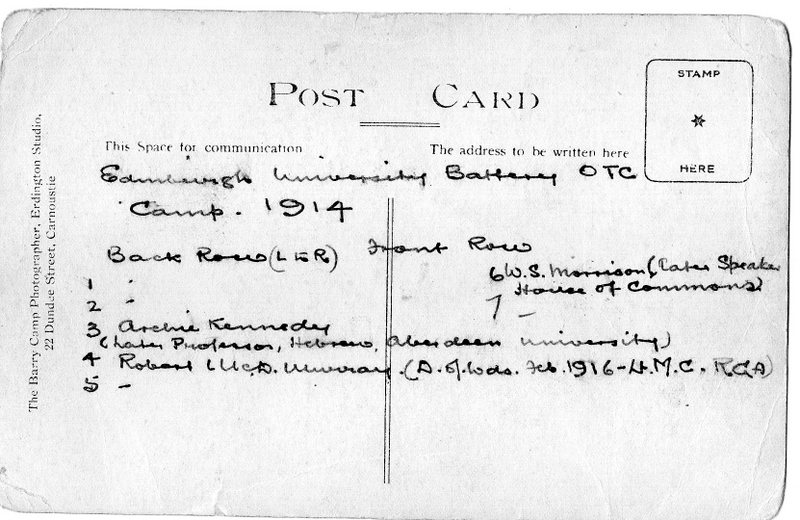 POST CARD
STAMP
HERE
This Space for communication
The address to be written here
The Barry Camp Photographer, Erdington Studio,
22 Dundee Street, Carnoustie
Edinburgh University Battery OTC
Camp. 1914
Back Row (L to R)
1 -
2 -
3 Archie Kennedy
(Later Professor, Hebrew, Aberdeen University)
4 Robert McD. Murray. (D. of Wds. Feb. 1916 - Lt. M.C. RGA)
5 -
Front Row
6 W.S. Morrison (Later Speaker
House of Commons)
7 -